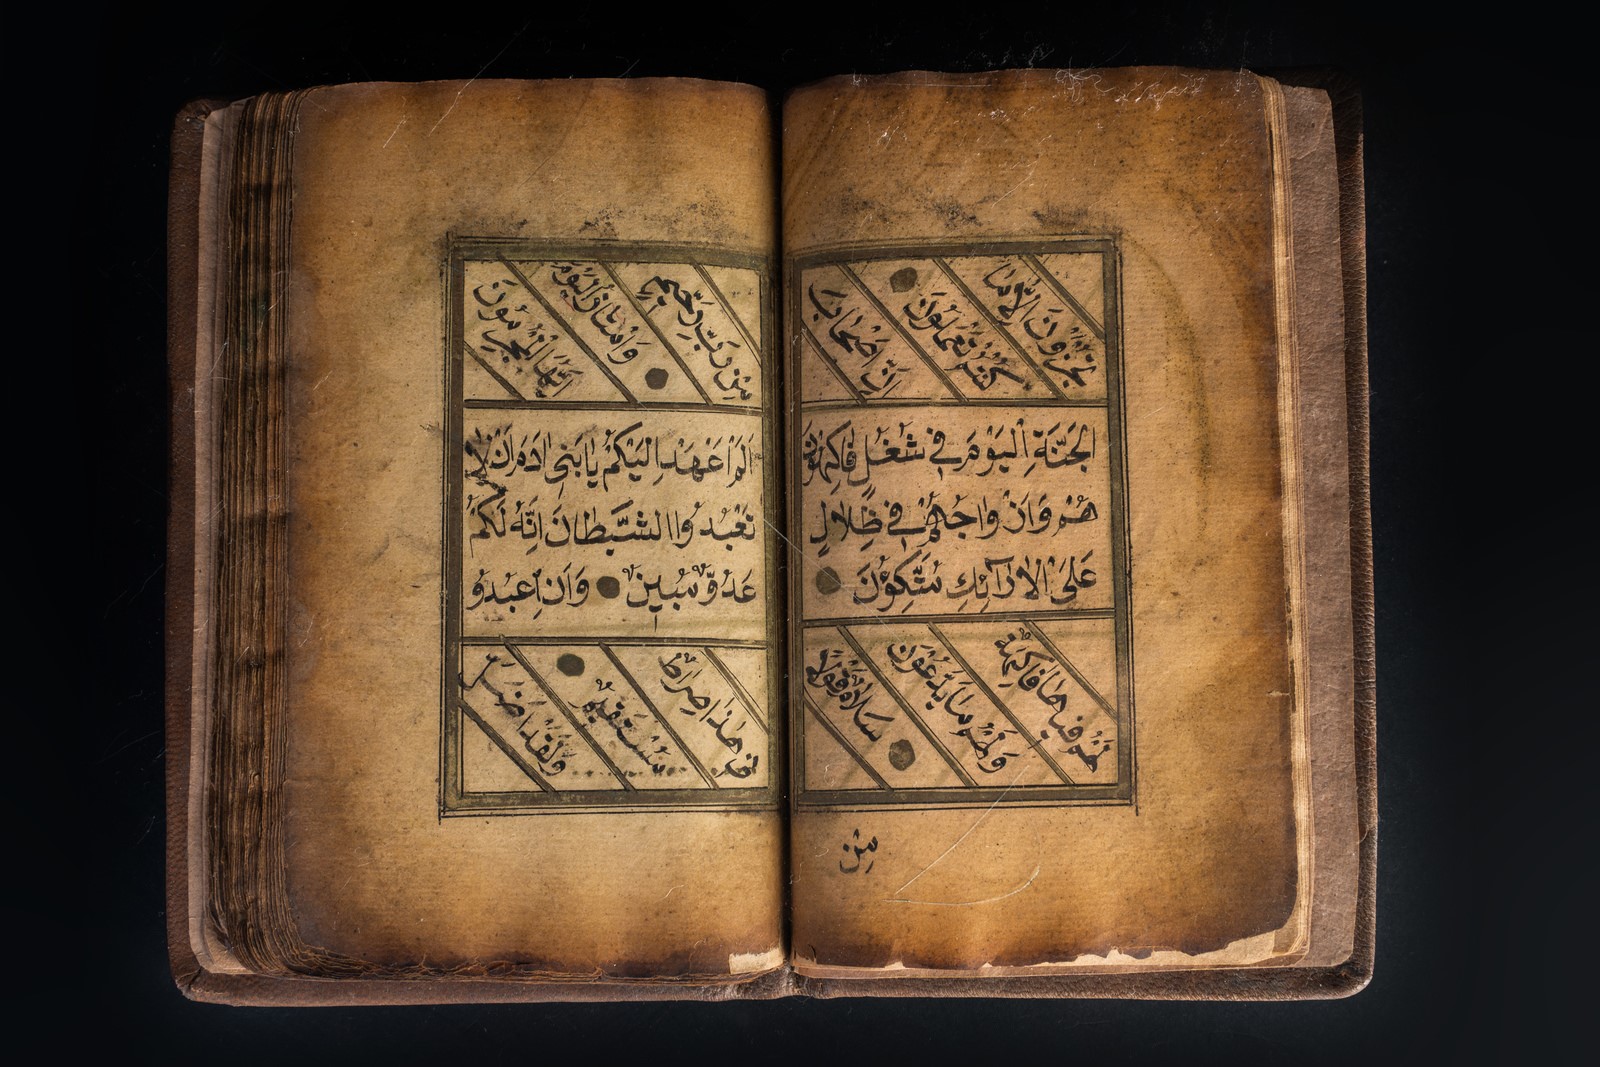 تُجْزَوْنَ اِلَّا مَا
كُنْتُمْ تَعْمَلُونَ
اِنَّ اَصْحَابَ
الْجَنَّةِ الْيَوْمَ فِي شُغُلٍ فَاكِهُونَ
هُمْ وَاَزْوَاجُهُمْ فِي ظِلَالٍ
عَلَى الْاَرَآئِكِ مُتَّكِؤُنَ
لَهُمْ فِيهَا فَاكِهَةٌ
وَلَهُمْ مَا يَدَّعُونَ
سَلَامٌ قَوْلًا
مِنْ
مِنْ رَبٍّ رَحِيمٍ
وَامْتَازُوا الْيَوْمَ
اَيُّهَا الْمُجْرِمُونَ
اَلَمْ اَعْهَدْ اِلَيْكُمْ يَا بَنِي اٰدَمَ اَنْ لَا
تَعْبُدُوا الشَّيْطَانَ اِنَّهُ لَكُمْ
عَدُوٌّ مُبِينٌ وَاَنِ اعْبُدُو
هٰذَا صِرَاطٌ
مُسْتَقِيمٌ
وَلَقَدْ اَضَلَّ